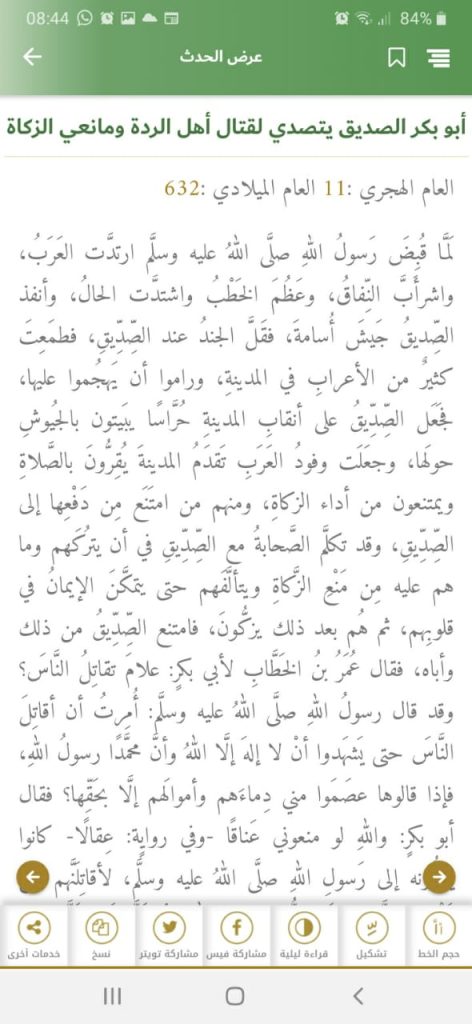 08:44 84%
عرض الحدث
أبو بكر الصديق يتصدي لقتال أهل الردة ومانعي الزكاة
العام الهجري :11 العام الميلادي :632
لَمَّا قُبِضَ رَسولُ اللهِ صلَّى اللهُ عليه وسلَّم ارتدَّت العَرَبُ،
واشرأَبَّ النِّفاقُ، وعَظُمَ الخَطْبُ واشتدَّت الحالُ، وأنفذ
الصِّديقُ جَيشَ أُسامةَ، فقَلَّ الجندُ عند الصِّدِّيقِ، فطَمَعِت
كثيرٌ من الأعرابِ في المدينةِ، وراموا أن يَهجُموا عليها،
فجَعَل الصِّدِّيقُ على أنقابِ المدينةِ حُرَّاسًا يبَيتون بالجُيوشِ
حولَها، وجعَلَت وفودُ العَرَبِ تَقدَمُ المدينةَ يُقِرُّونَ بالصَّلاةِ
ويمتنعون من أداء الزكاةِ، ومنهم من امتَنَع مِن دَفْعِها إلى
الصِّدِّيقِ، وقد تكلَّم الصَّحابةُ مع الصِّدِّيقِ في أن يتركَهم وما
هم عليه مِن مَنْعِ الزَّكاةِ ويتألَّفَهم حتى يتمكَّنَ الإيمانُ في
قلوبِهم، ثم هُم بعد ذلك يزكُّونَ، فامتنع الصِّدِّيقُ من ذلك
وأباه، فقال عُمَرُ بنُ الخَطَّابِ لأبي بكرٍ: علامَ تقاتِلُ النَّاسَ؟
وقد قال رسولُ اللهِ صلَّى اللهُ عليه وسلَّم: أُمِرتُ أن أقاتِلَ
النَّاسَ حتى يَشهَدوا أنْ لا إلهَ إلَّا اللهُ وأنَّ محمَّدًا رسولُ اللهِ،
فإذا قالوها عصَمَوا مني دِماءَهم وأموالَهم إلَّا بحَقِّها؟ فقال
أبو بكرٍ: واللهِ لو منعوني عَناقًا -وفي روايةٍ: عِقالًا- كانوا
إلى رَسولِ اللهِ صلَّى اللهُ عليه وسلَّم، لأقاتِلَنَّهم
حجم الخط تشكيل قراءة ليلية مشاركة فيس مشاركة تويتر نسخ خدمات أخرى